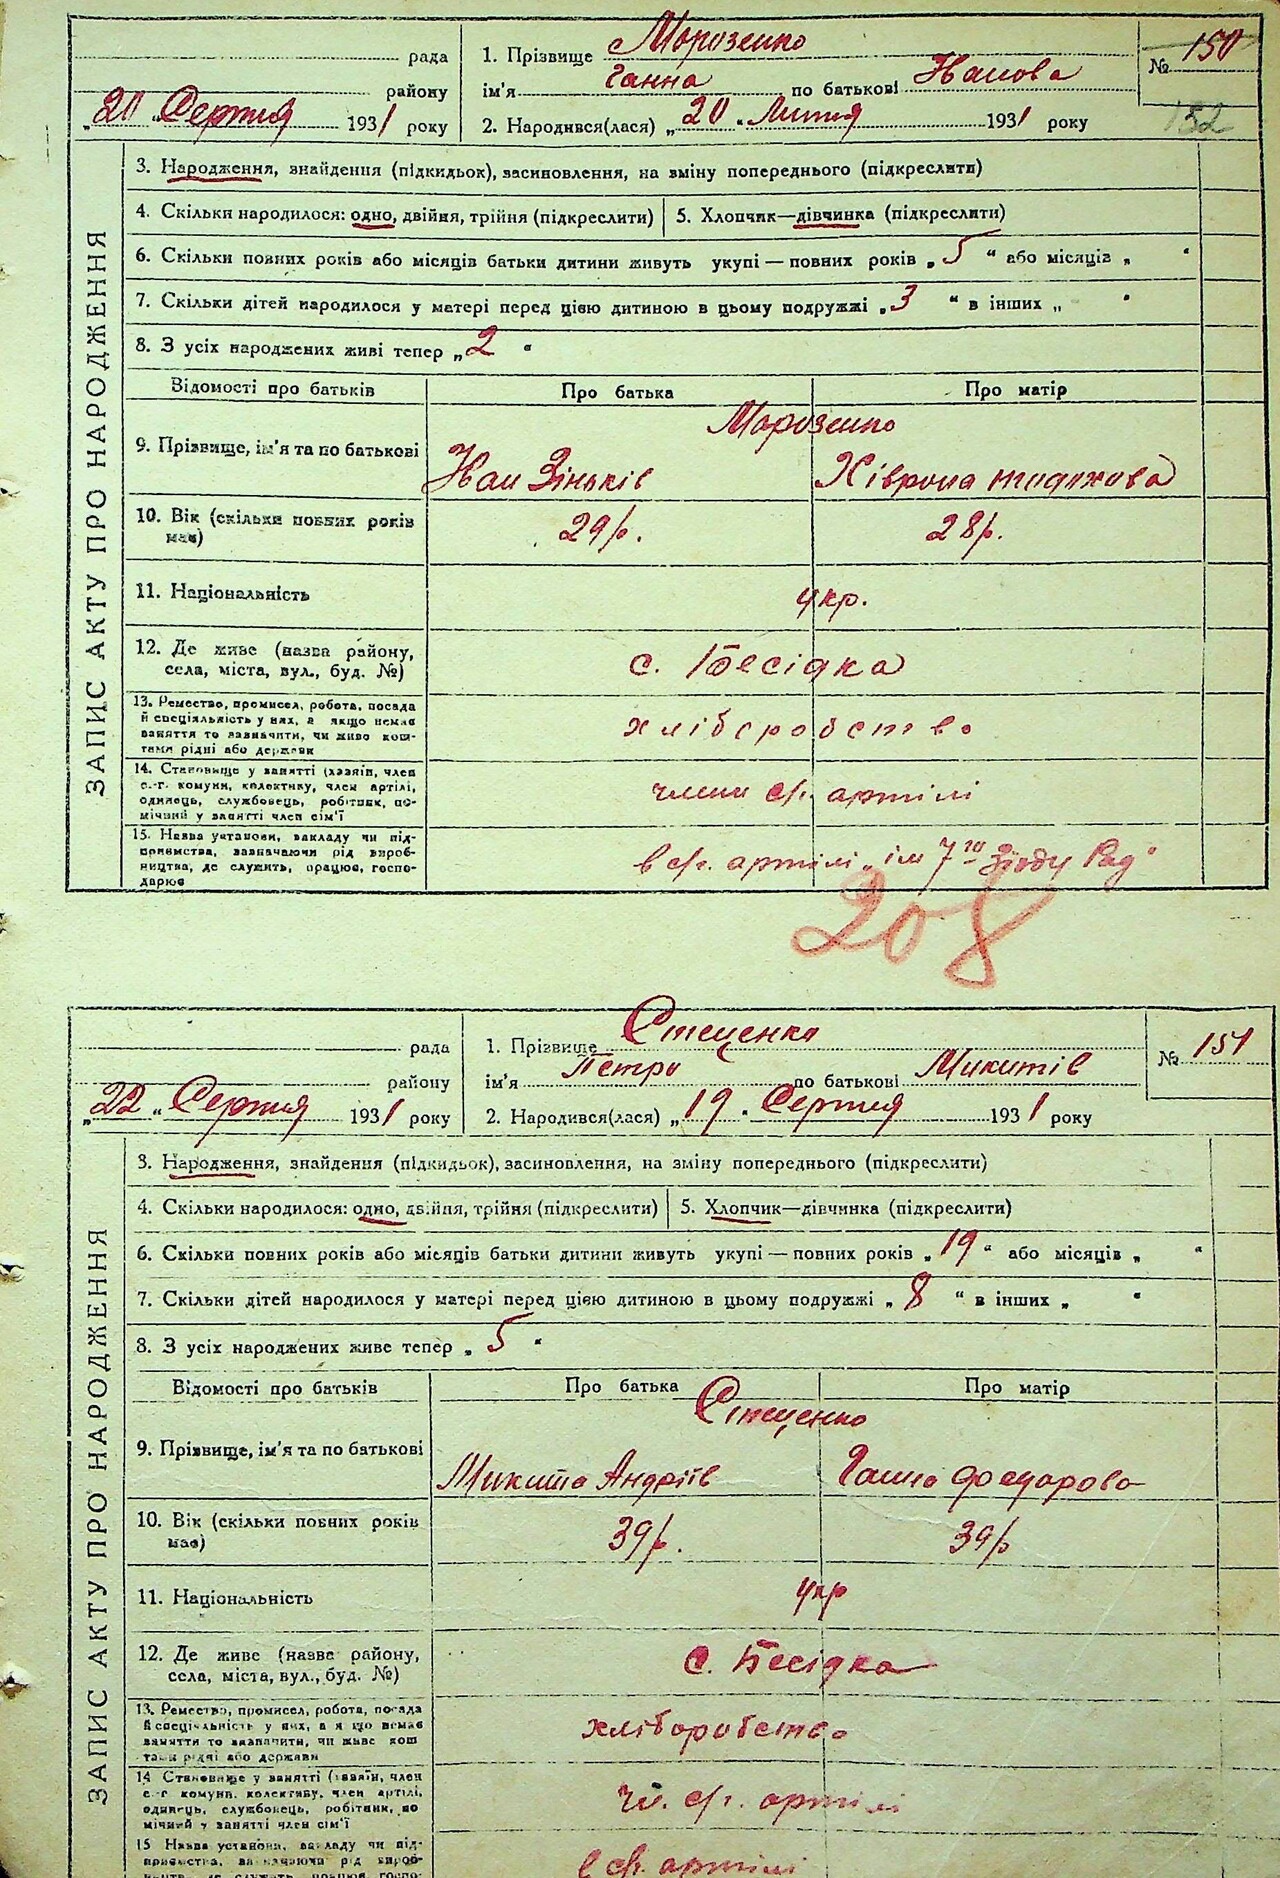 рада
району
„20 „ Серпня 1931 року
1. Прізвище Морозенко
ім'я Ганна по батькові Иванова
2. Народився(лася) „20 „ Липня 1931 року
№ 150
152
ЗАПИС АКТУ ПРО НАРОДЖЕННЯ
3. Народження, знайдення (підкидьок), засиновлення, на зміну попереднього (підкреслити)
4. Скільки народилося: одно, двійня, трійня (підкреслити) 5. Хлопчик—дівчинка (підкреслити)
6. Скільки повних років або місяців батьки дитини живуть укупі — повних років „ 5 “ або місяців „ “
7. Скільки дітей народилося у матері перед цією дитиною в цьому подружжі „ 3 “ в інших „ “
8. З усіх народжених живі тепер „ 2 “
Відомості про батьків Про батька Про матір
Морозенко
9. Прізвище, ім'я та по батькові Иван Зіньків Хіврона
10. Вік (скільки повних років 29 р. 28 р.
має)
11. Національність укр.
12. Де живе (назва району, с. Бесідка
села, міста, вул., буд. №)
13. Ремество, промисел, робота, посада
й спеціальність у них, а якщо немає хліборобство
заняття то зазначити, чи живе кош-
тами рідні або держави
14. Становище у занятті (хазяїн, член
с.-г. комуни, колективу, член артілі, члени с/г. артілі
одинець, службовець, робітник, по-
мічний у занятті член сім'ї
15. Назва установи, закладу чи під-
приємства, зазначаючи рід вироб- в с/г. артілі „ім 7го Зїзду Рад“
ництва, де служить, працює, госпо-
дарює
208
рада
району
„22 „ Серпня 1931 року
1. Прізвище Стеценко
ім'я Петро по батькові Микитів
2. Народився(лася) „ 19 „ Серпня 1931 року
№ 151
ЗАПИС АКТУ ПРО НАРОДЖЕННЯ
3. Народження, знайдення (підкидьок), засиновлення, на зміну попереднього (підкреслити)
4. Скільки народилося: одно, двійня, трійня (підкреслити) 5. Хлопчик—дівчинка (підкреслити)
6. Скільки повних років або місяців батьки дитини живуть укупі — повних років „ 19 “ або місяців „ “
7. Скільки дітей народилося у матері перед цією дитиною в цьому подружжі „ 8 “ в інших „ “
8. З усіх народжених живе тепер „ 5 “
Відомості про батьків Про батька Про матір
Стеценко
9. Прізвище, ім'я та по батькові Микита Андріїв Ганна Федорова
10. Вік (скільки повних років 39 р. 39 р
має)
11. Національність укр
12. Де живе (назве району, с. Бесідка
села, міста, вул., буд. №)
13. Ремество, промисел, робота, посада
й спеціальність у них, а я що немає хліборобство
заняття то зазначити, чи живе кош
тами рідні або держави
14 Становище у занятті (хазяїн, член
с.-г комуни, колективу, член артілі, чл. с/г. артілі
одинець, службовець, робітник, по
мічний у занятті член сім'ї
15 Назва установи, закладу чи під-
приємства, зазначаючи рід вироб- в с/г. артілі
ництва, де служить, працює, госпо-